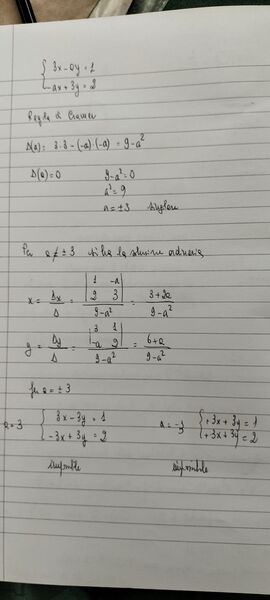 { 3x - ay = 1
{ -ax + 3y = 2
Regola di Cramer
Δ(a) = 3·3 - (-a)·(-a) = 9-a²
Δ(a) = 0 9-a² = 0
a² = 9
a = ±3
Per a ≠ ±3 si ha la soluzione ordinaria
x = Δx/Δ = |1 -a; 2 3|/(9-a²) = (3+2a)/(9-a²)
y = Δy/Δ = |3 1; -a 2|/(9-a²) = (6+a)/(9-a²)
per a = ±3
a=3 { 3x - 3y = 1 a = -3 { +3x + 3y = 1
{ -3x + 3y = 2 { +3x + 3y = 2
impossibile impossibile